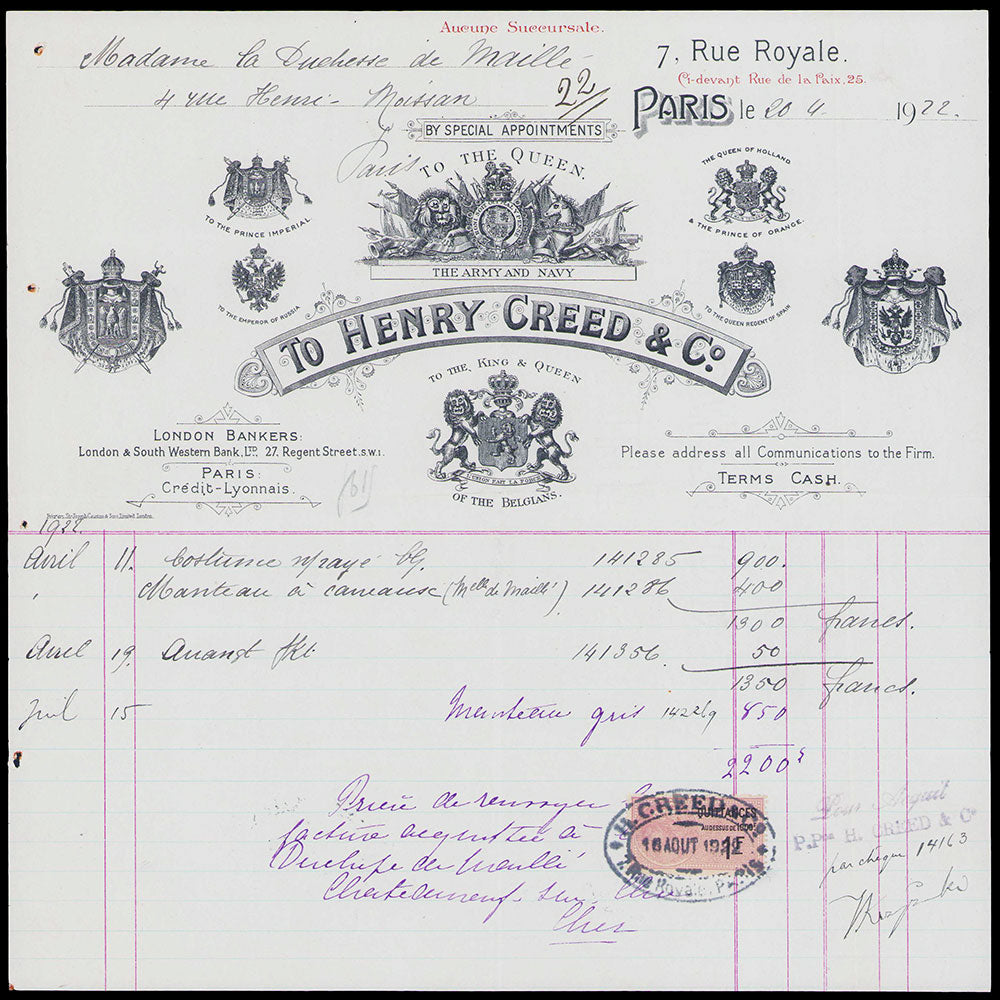 Aucune Succursale.
Madame la Duchesse de Maillé
7, Rue Royale.
Ci-devant Rue de la Paix, 25.
4 rue Henri-Moissan
22/
PARIS le 20 4. 1922.
Paris
BY SPECIAL APPOINTMENTS
TO THE QUEEN.
THE ARMY AND NAVY
TO THE PRINCE IMPERIAL.
TO THE EMPEROR OF RUSSIA
THE QUEEN OF HOLLAND
& THE PRINCE OF ORANGE.
TO THE QUEEN REGENT OF SPAIN
TO HENRY CREED & Co.
TO THE KING & QUEEN
L'UNION FAIT LA FORCE
OF THE BELGIANS.
LONDON BANKERS:
London & South Western Bank, LTD. 27, Regent Street. S.W.1.
PARIS:
Crédit-Lyonnais.
Please address all Communications to the Firm.
TERMS CASH.
1922.
Avril 11. Costume 141285 900.
" Manteau à (Melle de Maillé) 141286 400
1300 francs.
Avril 19. 141356. 50
1350 francs.
Juil 15 Manteau gris 142269 850
2200
Prière de renvoyer la
facture acquittée à
Duchesse de Maillé
Chateauneuf-sur-Cher
Cher
H. CREED & Co.
QUITTANCES
16 AOUT 1922
7, Rue Royale, PARIS
Pour Acquit
P.Pon H. CREED & Co
par chèque 14163